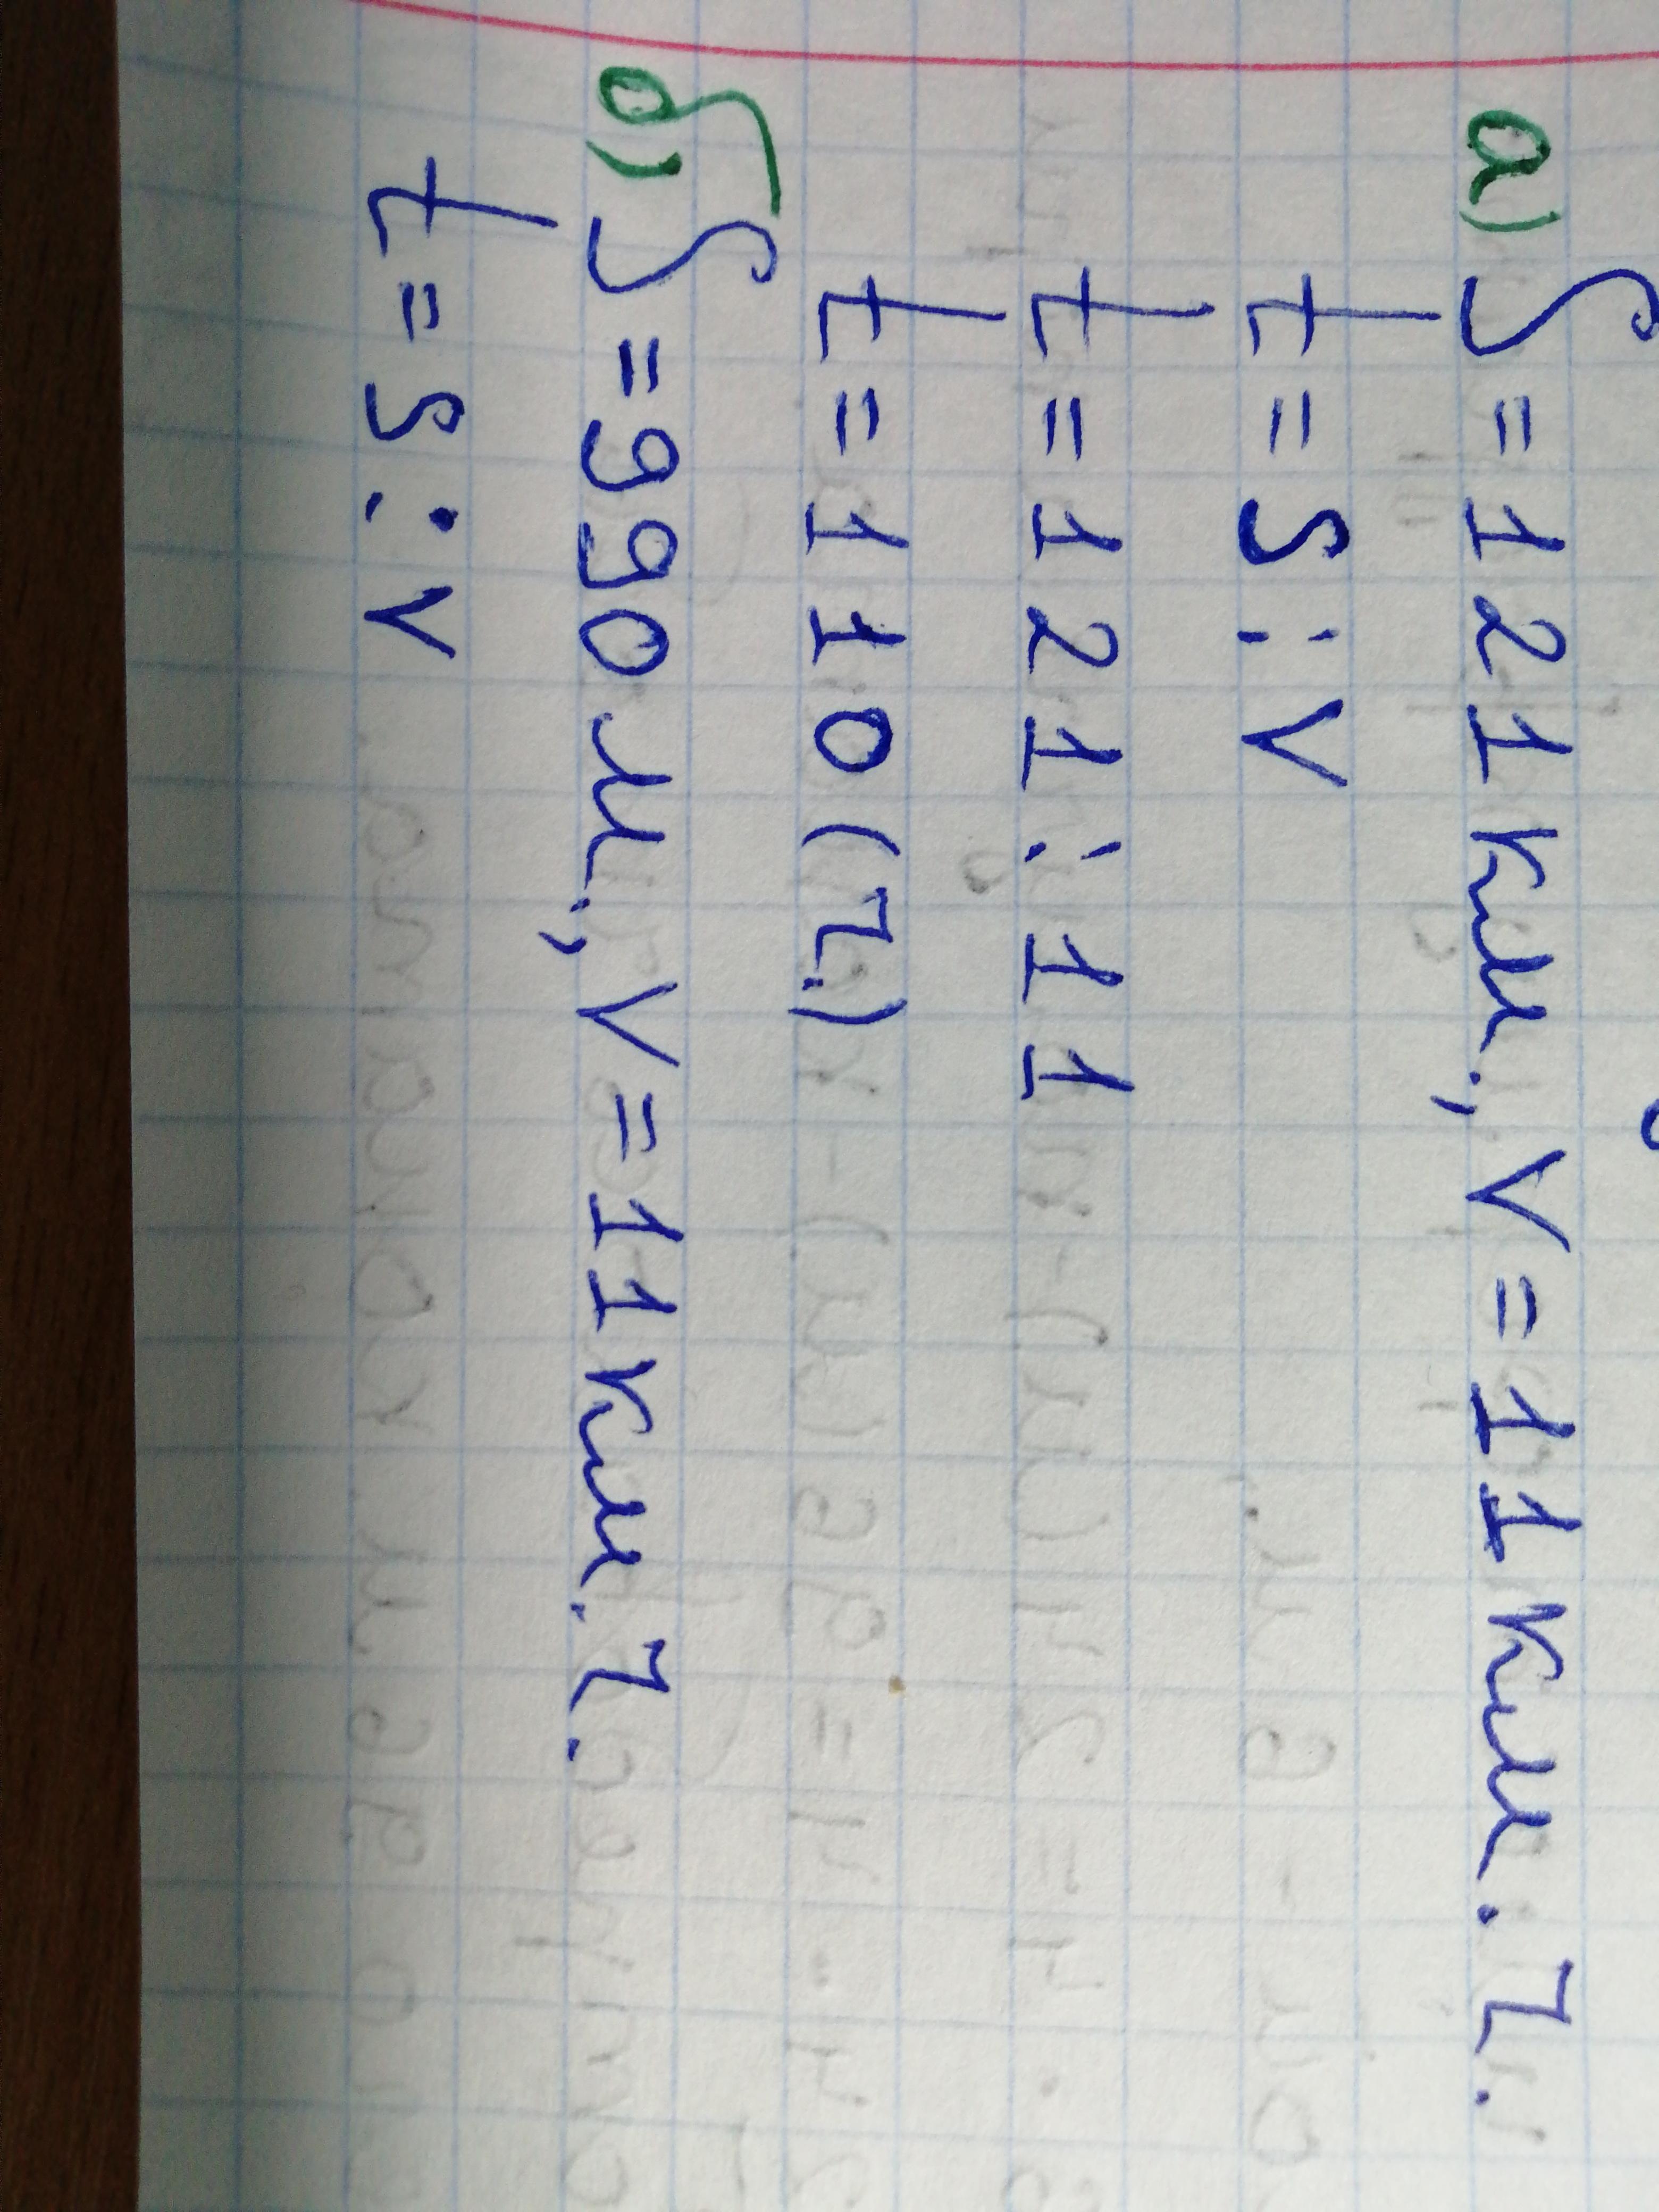 а) S = 121 км., V = 11 км. ч.
t = S : V
t = 121 : 11
t = 110 (ч.)
б) S = 990 м., V = 11 км. ч.
t = S : V